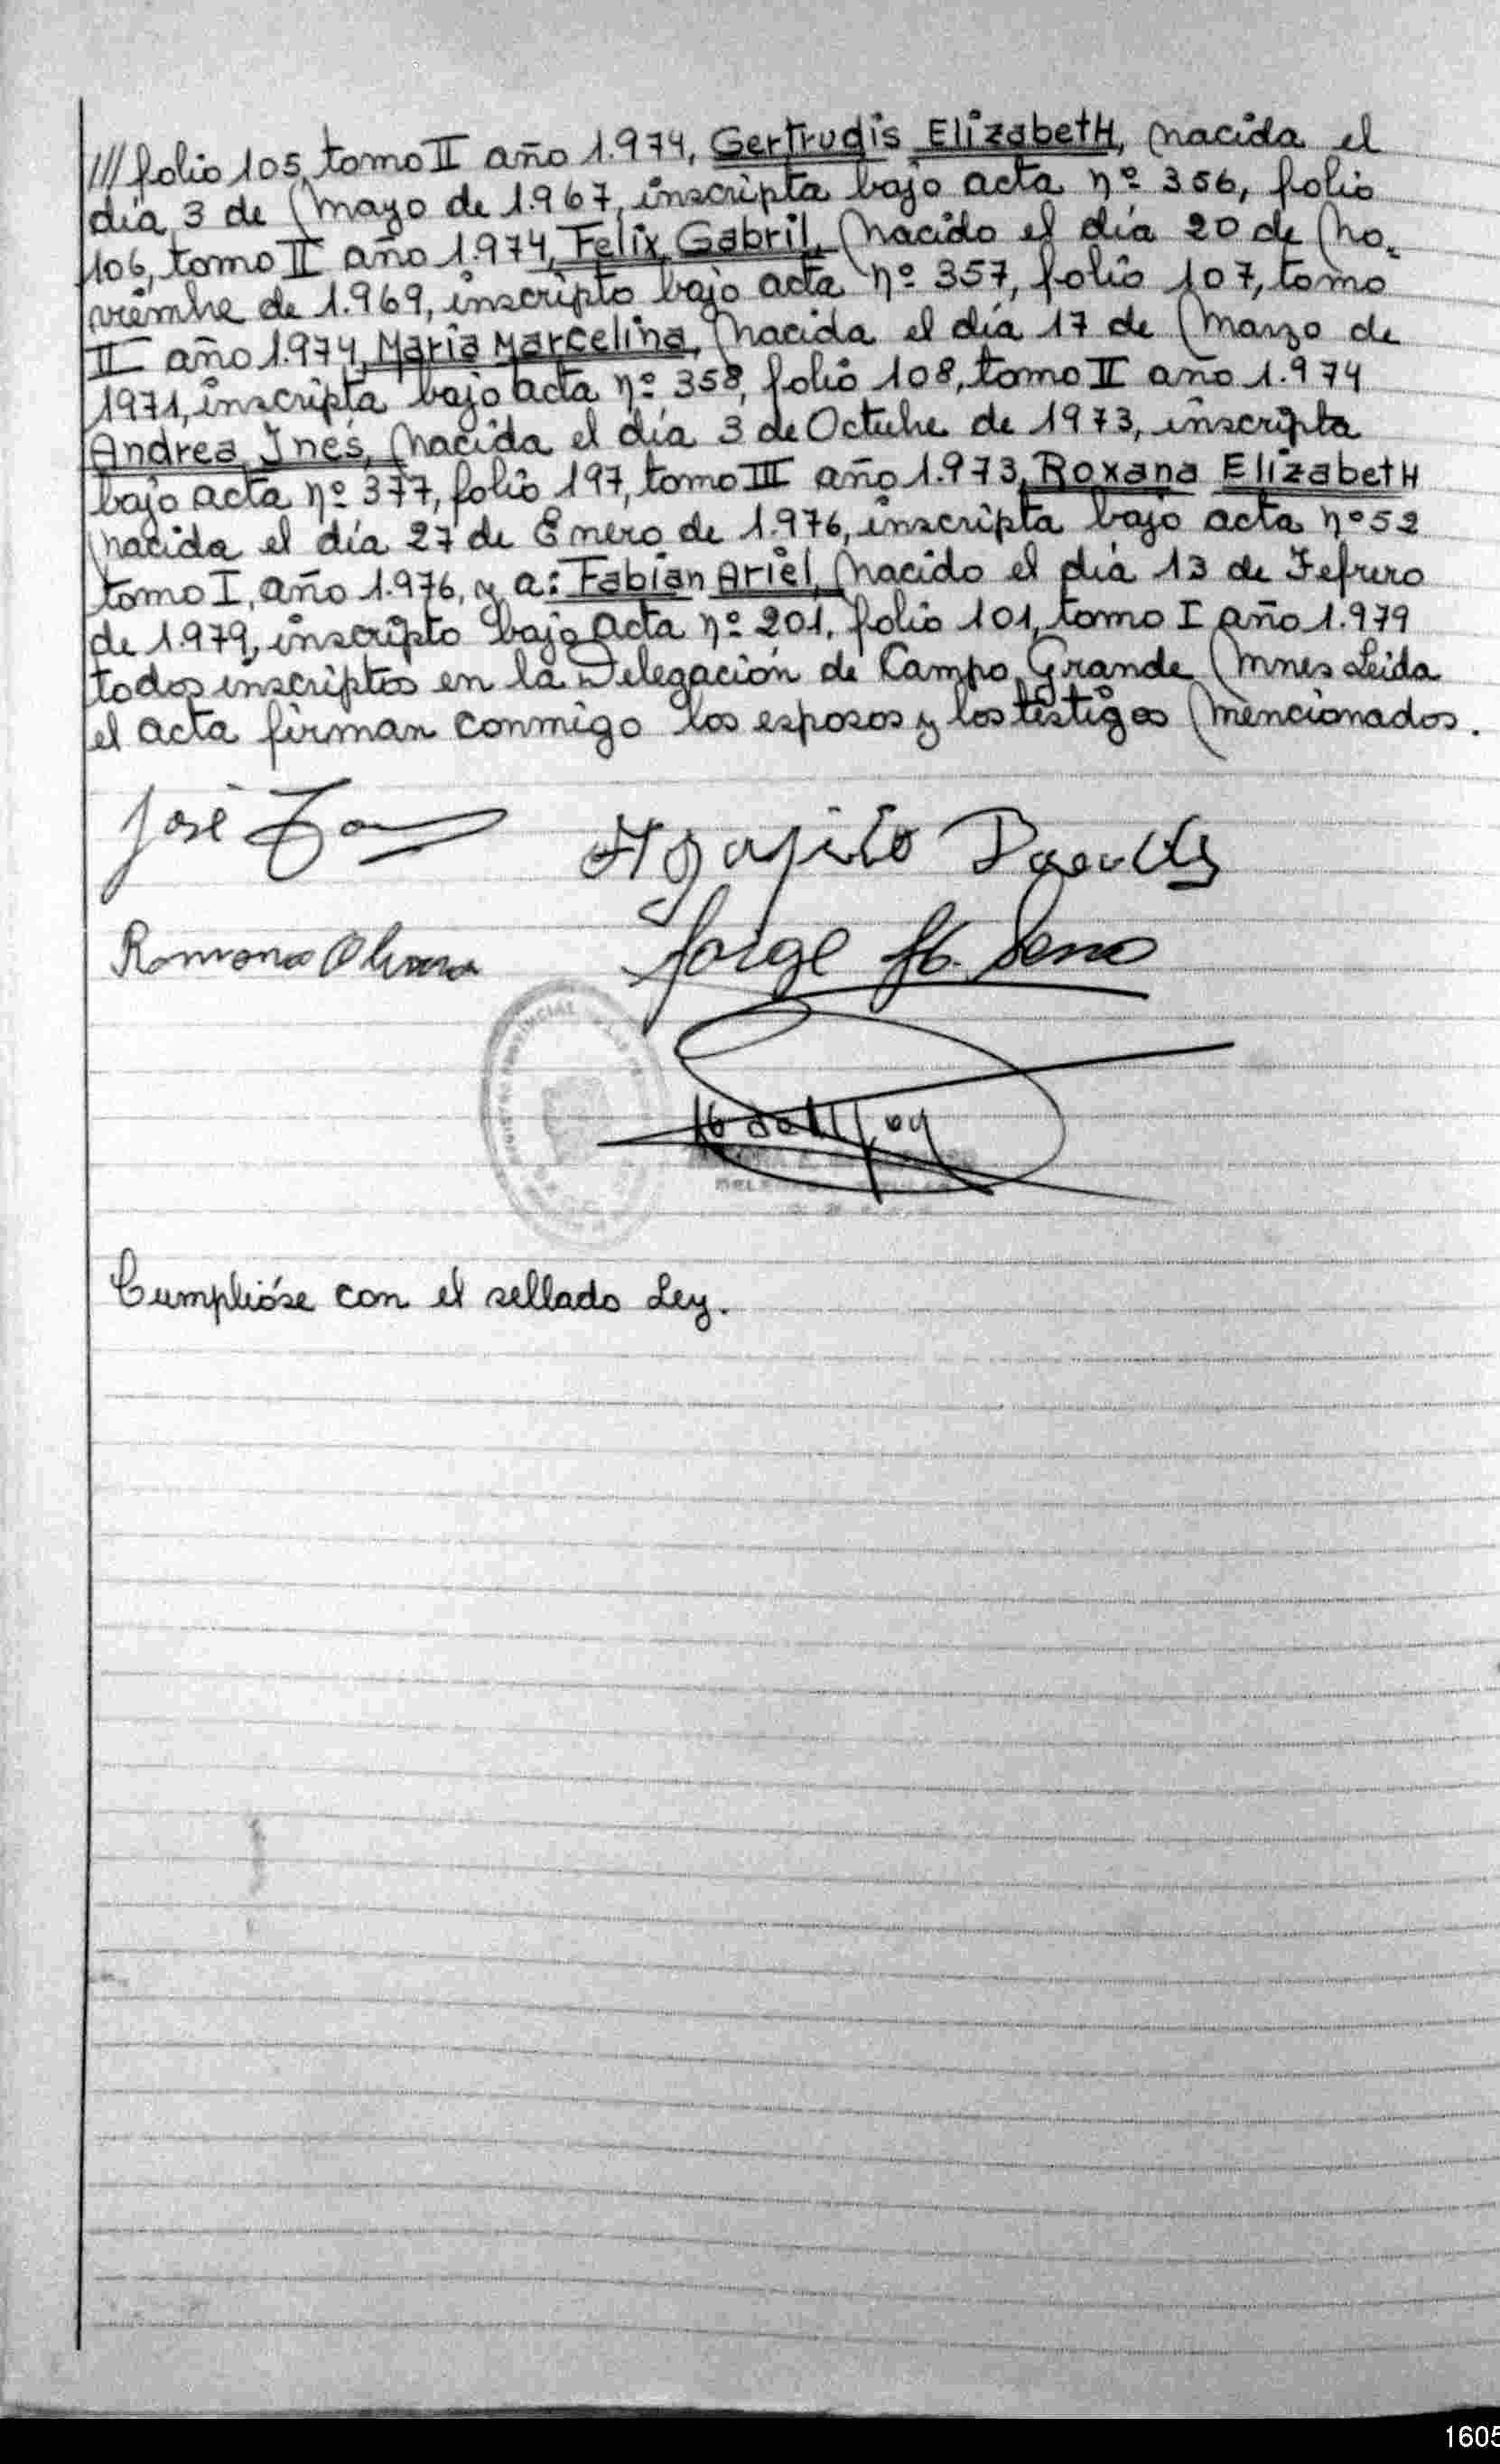 /// folio 105, tomo II año 1.974, Gertrudis Elizabeth, nacida el
día 3 de mayo de 1.967, inscripta bajo acta nº 356, folio
106, tomo II año 1.974, Felix Gabril, nacido el día 20 de no-
viembre de 1.969, inscripto bajo acta nº 357, folio 107, tomo
II año 1.974, Maria Marcelina, nacida el día 17 de marzo de
1971, inscripta bajo acta nº 358, folio 108, tomo II año 1.974
Andrea Inés, nacida el día 3 de Octubre de 1973, inscripta
bajo acta nº 377, folio 197, tomo III año 1.973, Roxana Elizabeth
nacida el día 27 de Enero de 1.976, inscripta bajo acta nº 52
tomo I, año 1.976, y a: Fabian Ariel, nacido el día 13 de Febrero
de 1.979, inscripto bajo acta nº 201, folio 101, tomo I año 1.979
todos inscriptos en la Delegación de Campo Grande Mnes Leida
el acta firman conmigo los esposos y los testigos mencionados.
José
Agapito
Ramona Olivera
Jorge
Cumplióse con el sellado Ley.
1605